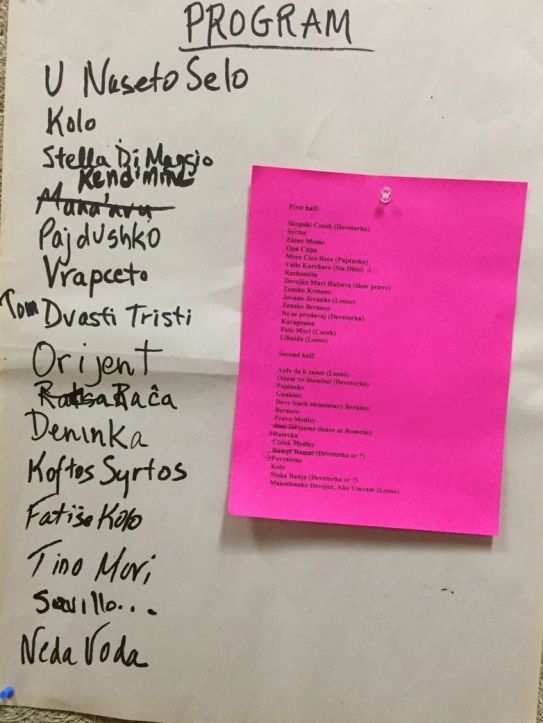 PROGRAM
U Naseto Selo
Kolo
Stella Di Maggio
Kend'Mine
Pajdushko
Vrapceto
Tom Dvasti Tristi
Orijent
Ratsa Rača
Deninka
Koftos Syrtos
Fatiše Kolo
Tino Mori
Savillo...
Neda Voda
First half:
Skopski Cocek (Devetorka)
Syrtos
Eleno Mome
Opa Cupa
More Cico Rece (Pajdusko)
Valle Korchare (Sta Dhio)
Rachenitsa
Devojko Mari Hubava (slow pravo)
Zensko Krsteno
Jovano Jovanke (Lesno)
Zensko Berance
Ne se prodavaj (Devetorka)
Karagouna
Fato Mori (Cocek)
Likuida (Lesno)
Second half:
Ajde da li znaes (Lesno)
Odam vo Stambul (Devetorka)
Pajdusko
Gankino
Dave teach elementary Berance
Berance
Pravo Medley
(same dance as Rumelaj)
Ratevka
Cocek Medley
Rampi Rampi (Devetorka or ?)
Povrateno
Kolo
Niska Banja (Devetorka or ?)
Makedonsko Devojce, Ako Umram (Lesno)